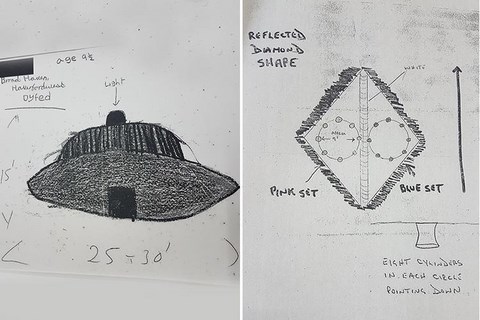 age 9½
Broad Haven
Haverfordwest
Dyfed
Light
15'
25 - 30'
REFLECTED
DIAMOND
SHAPE
WHITE
APPROX
9"
PINK SET
BLUE SET
EIGHT CYLINDERS
IN EACH CIRCLE
POINTING DOWN